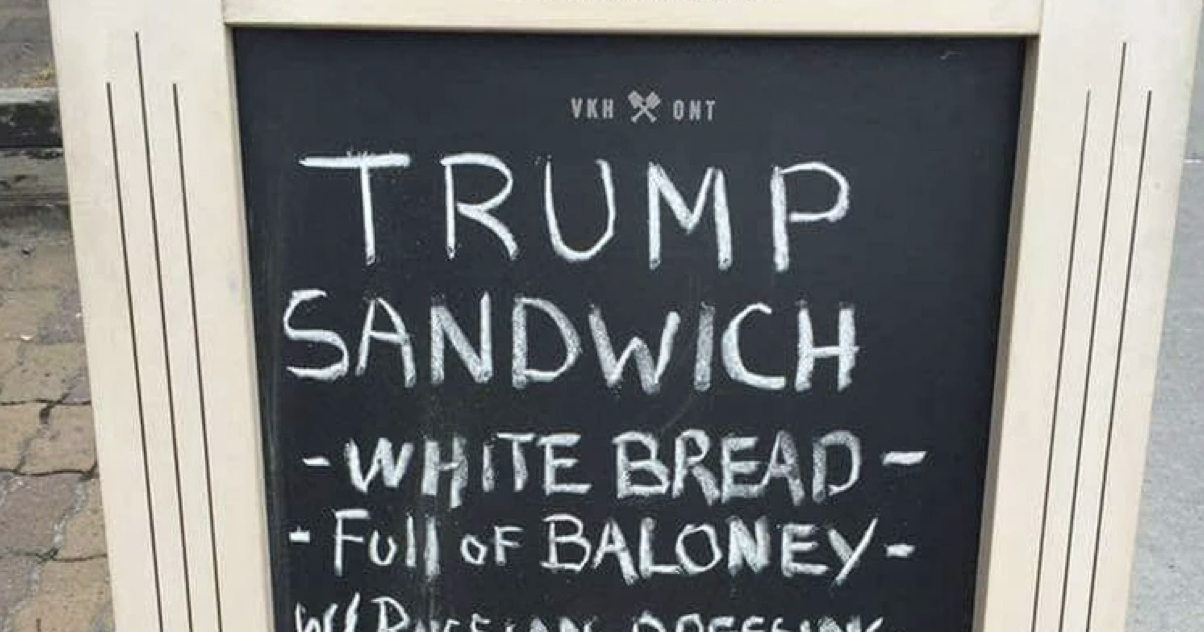 VKH ONT
TRUMP
SANDWICH
- WHITE BREAD -
- Full of BALONEY -
W/ RUSSIAN DRESSING